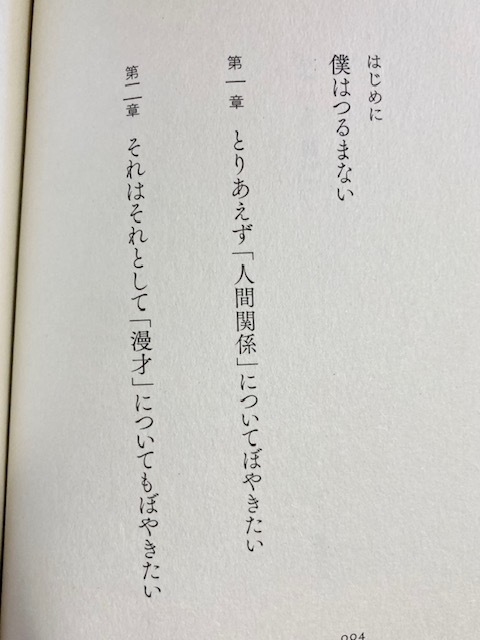 はじめに
僕はつるまない
第一章 とりあえず「人間関係」についてぼやきたい
第二章 それはそれとして「漫才」についてもぼやきたい